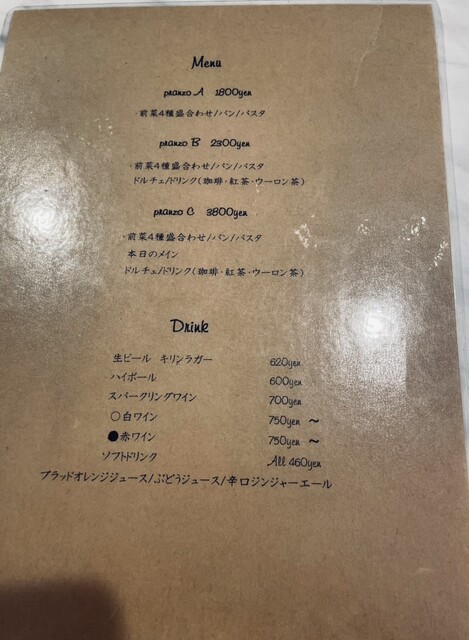 Menu
pranzo A 1800yen
・前菜4種盛合わせ/パン/パスタ
pranzo B 2300yen
・前菜4種盛合わせ/パン/パスタ
ドルチェ/ドリンク(珈琲・紅茶・ウーロン茶)
pranzo C 3800yen
・前菜4種盛合わせ/パン/パスタ
本日のメイン
ドルチェ/ドリンク(珈琲・紅茶・ウーロン茶)
Drink
生ビール キリンラガー 620yen
ハイボール 600yen
スパークリングワイン 700yen
○白ワイン 750yen ～
●赤ワイン 750yen ～
ソフトドリンク All 460yen
ブラッドオレンジジュース/ぶどうジュース/辛口ジンジャーエール